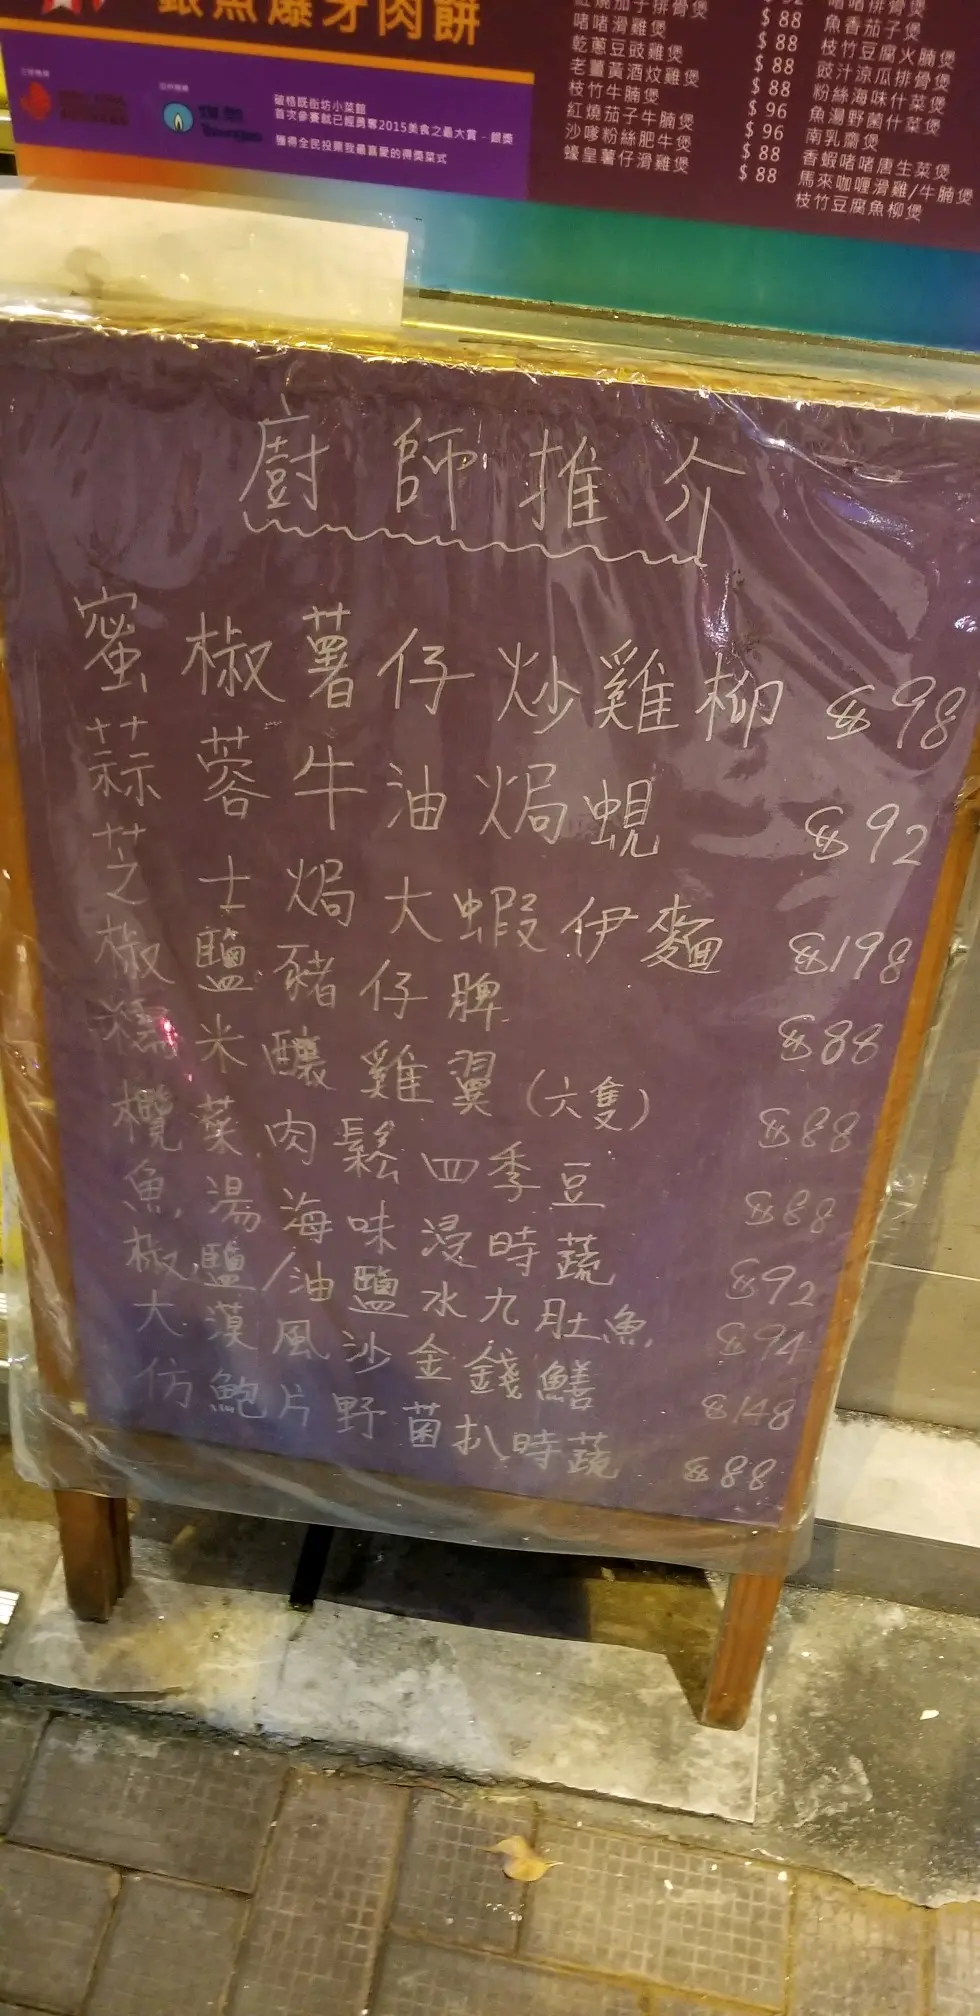 銀魚爆牙肉餅
破格既街坊小菜館
首次參賽就已經勇奪2015美食之最大賞 - 銀獎
獲得全民投票我最喜愛的得獎菜式
紅燒茄子排骨煲
啫啫滑雞煲 $88
乾蔥豆豉雞煲 $88
老薑黃酒炆雞煲 $88
枝竹牛腩煲 $88
紅燒茄子牛腩煲 $96
沙嗲粉絲肥牛煲 $96
蠔皇薯仔滑雞煲 $88
$88
啫啫排骨煲
魚香茄子煲
枝竹豆腐火腩煲
豉汁涼瓜排骨煲
粉絲海味什菜煲
魚湯野菌什菜煲
南乳齋煲
香蝦啫啫唐生菜煲
馬來咖喱滑雞/牛腩煲
枝竹豆腐魚柳煲
廚師推介
蜜椒薯仔炒雞柳 $98
蒜蓉牛油焗蜆 $92
芝士焗大蝦伊麵 $198
椒鹽豬仔脾 $88
糯米釀雞翼(六隻) $88
欖菜肉鬆四季豆 $88
魚湯海味浸時蔬 $92
椒鹽/油鹽水九肚魚 $94
大漠風沙金錢鱔 $148
仿鮑片野菌扒時蔬 $88